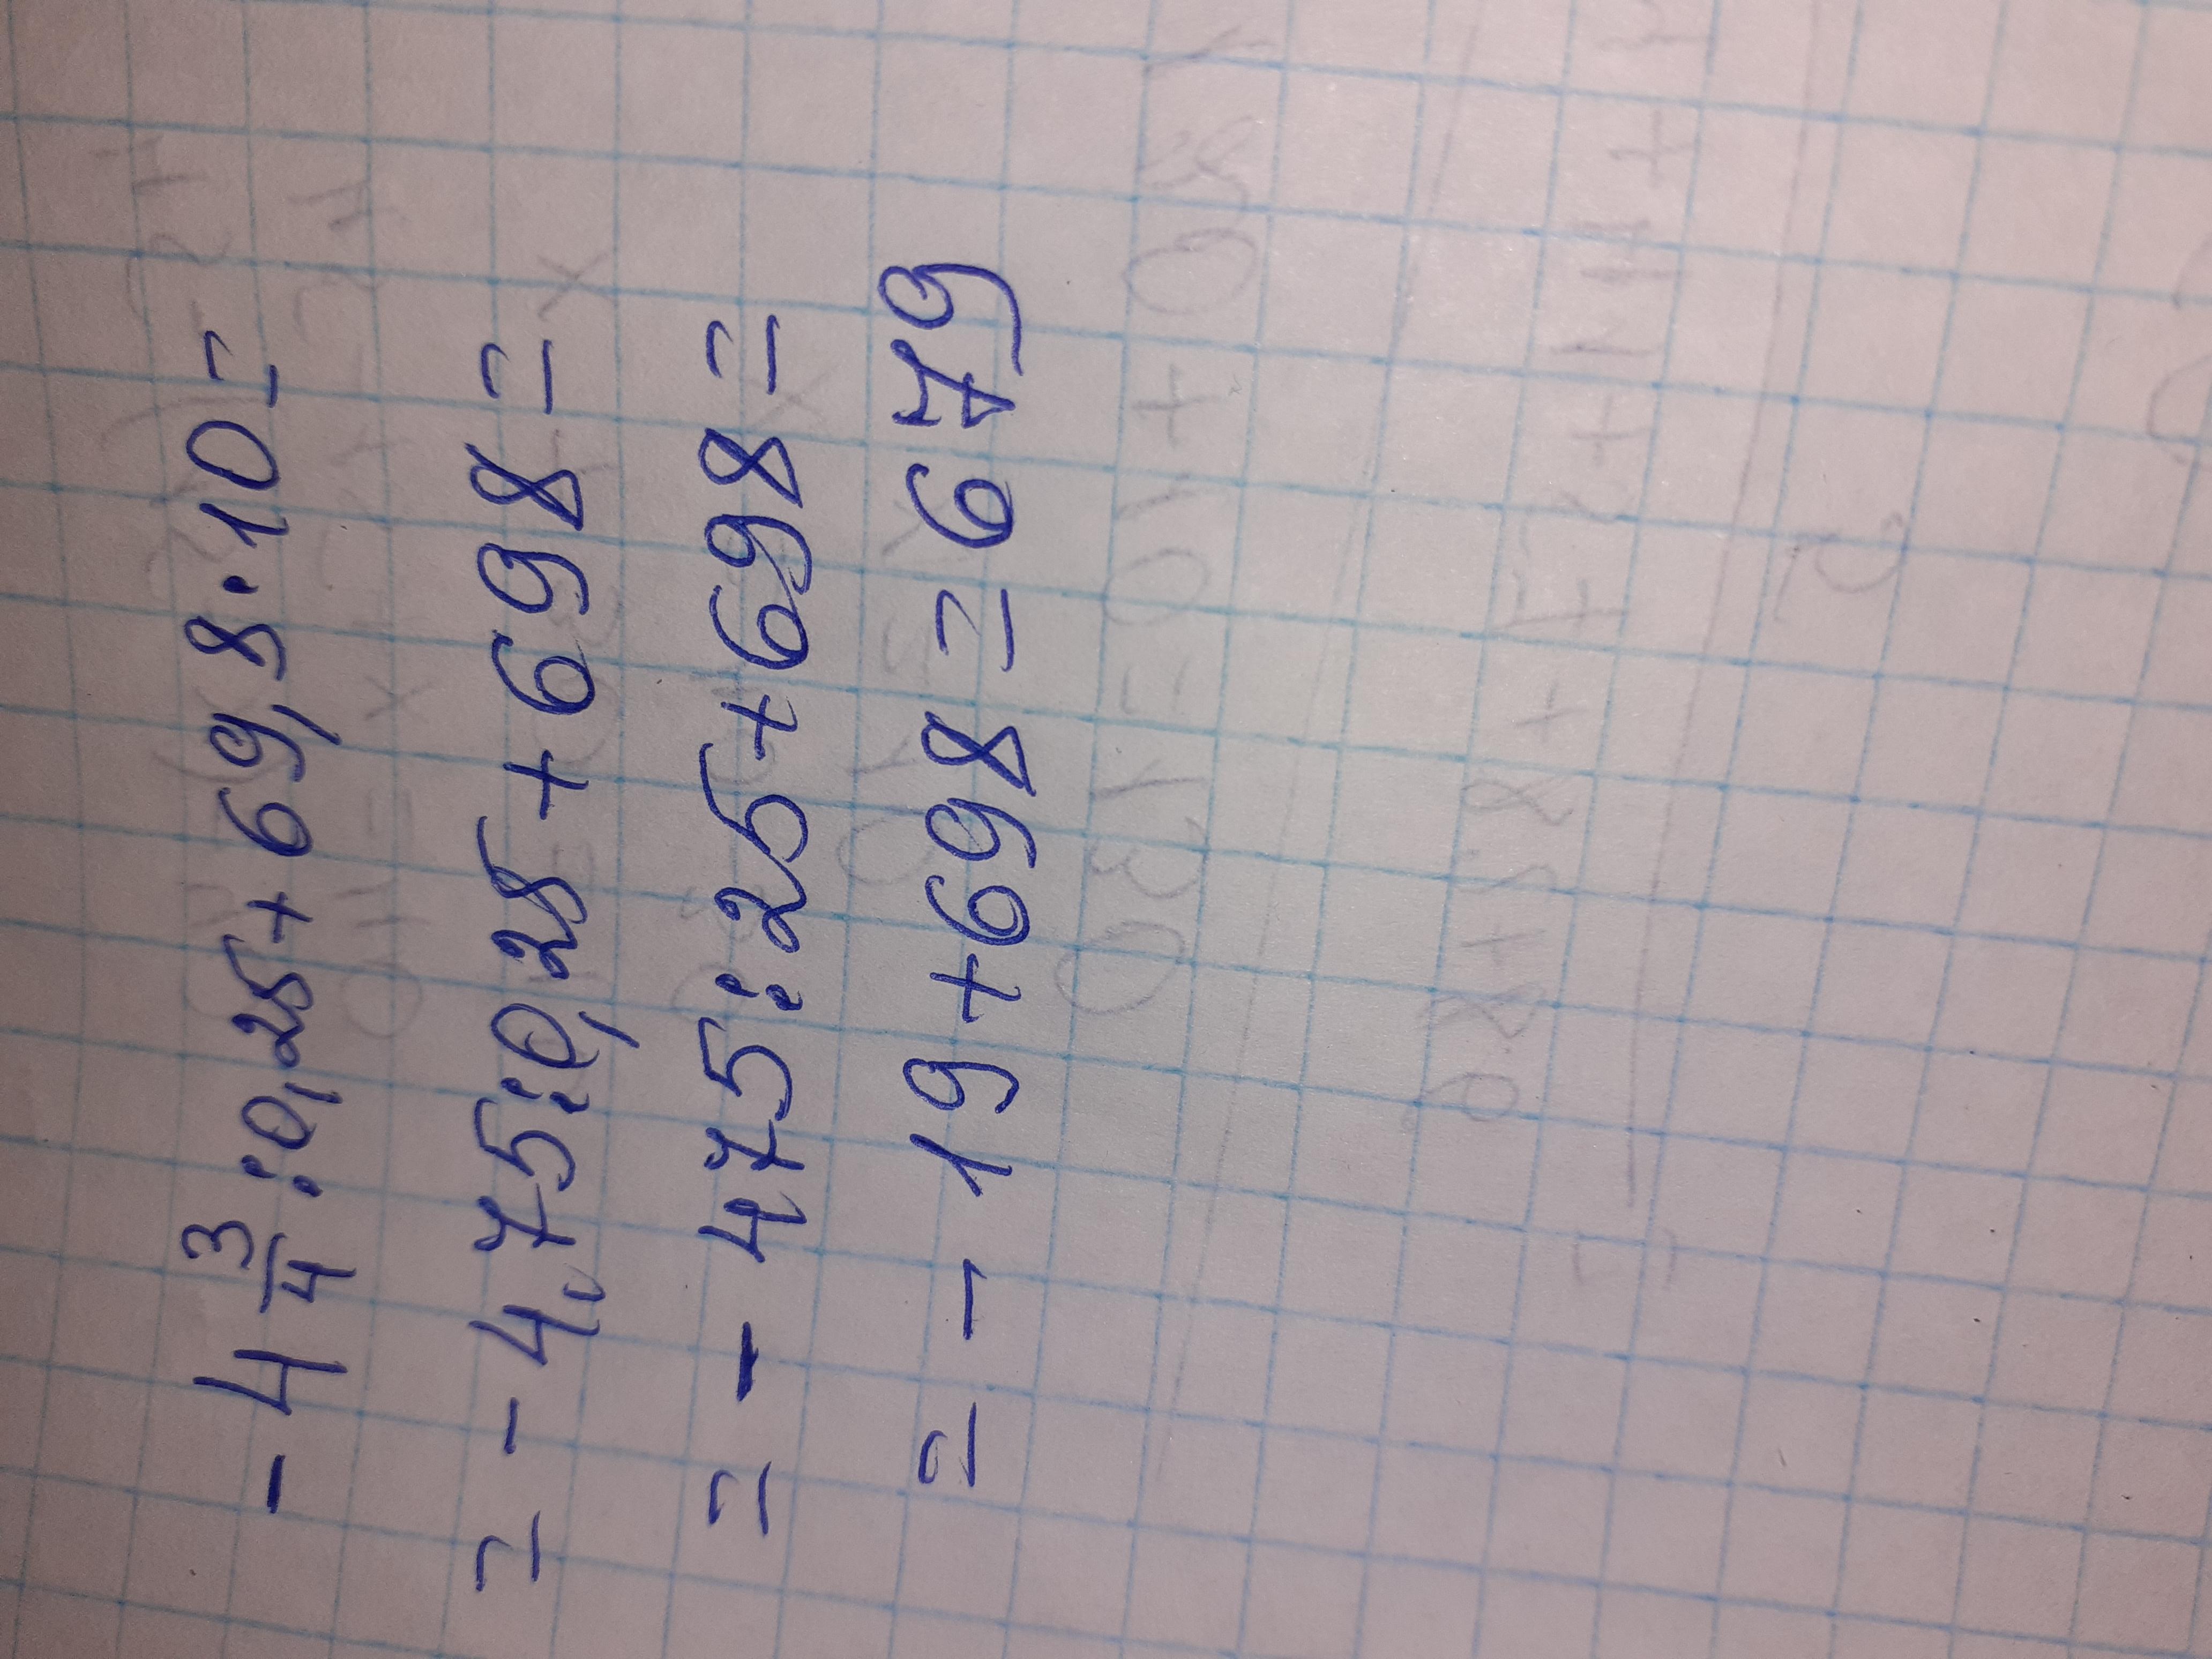 - 4 3/4 : 0,25 + 69,8 · 10 =
= - 4,75 : 0,25 + 698 =
= - 475 : 25 + 698 =
= - 19 + 698 = 679